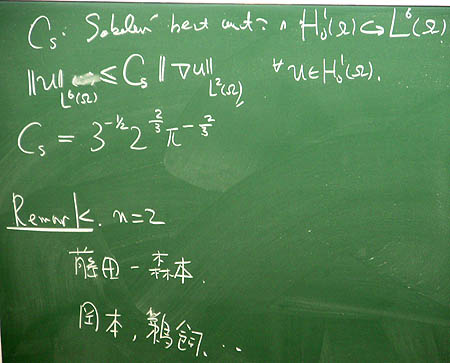 C_s : Sobolev best const. n H_0^1(Ω) ↪ L^6(Ω)
‖u‖_{L^6(Ω)} ≤ C_s ‖∇u‖_{L^2(Ω)} ∀u∈H_0^1(Ω).
C_s = 3^{-1/2} 2^{2/3} π^{-2/3}
Remark. n=2
藤田-森本.
岡本, 鵜飼, …